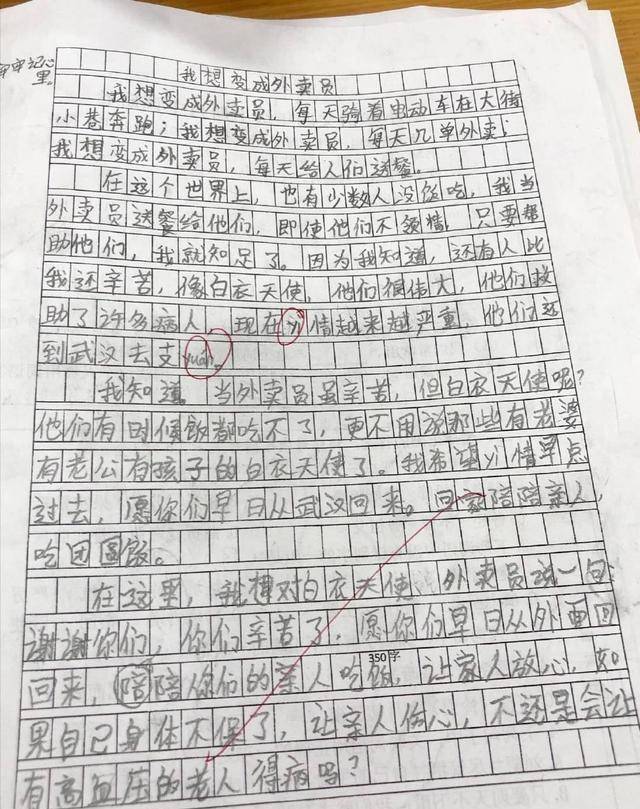 牢牢记心
里。
我想变成外卖员
我想变成外卖员，每天骑着电动车在大街
小巷奔跑；我想变成外卖员，每天几单外卖；
我想变成外卖员，每天给人们送餐。
在这个世界上，也有少数人没饭吃，我当
外卖员送餐给他们，即使他们不领情，只要帮
助他们，我就知足了。因为我知道，还有人比
我还辛苦，像白衣天使，他们很伟大，他们救
助了许多病人，现在yì情越来越严重，他们还
到武汉去支yuán。
我知道。当外卖员虽辛苦，但白衣天使呢？
他们有时候饭都吃不了，更不用说那些有老婆
有老公有孩子的白衣天使了。我希望yì情早点
过去，愿你们早日从武汉回来。回家陪陪亲人，
吃团圆饭。
在这里，我想对白衣天使、外卖员说一句：
谢谢你们，你们辛苦了，愿你们早日从外面回
350字
回来，陪陪你们的亲人吃饭，让家人放心，如
果自己身体不保了，让亲人伤心，不还是会让
有高血压的老人得病吗？